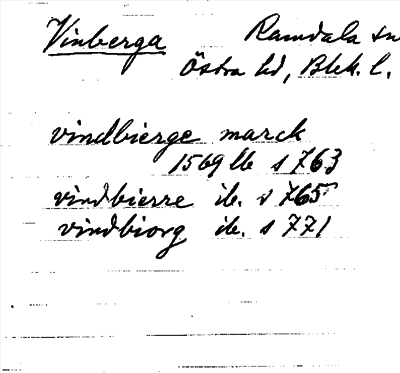 Vinberga Ramdala sn
Östra hd, Blek. l.
vindbierge marck
1569 lb s 763
vindbierre ib. s 765
vindbiorg ib. s 771